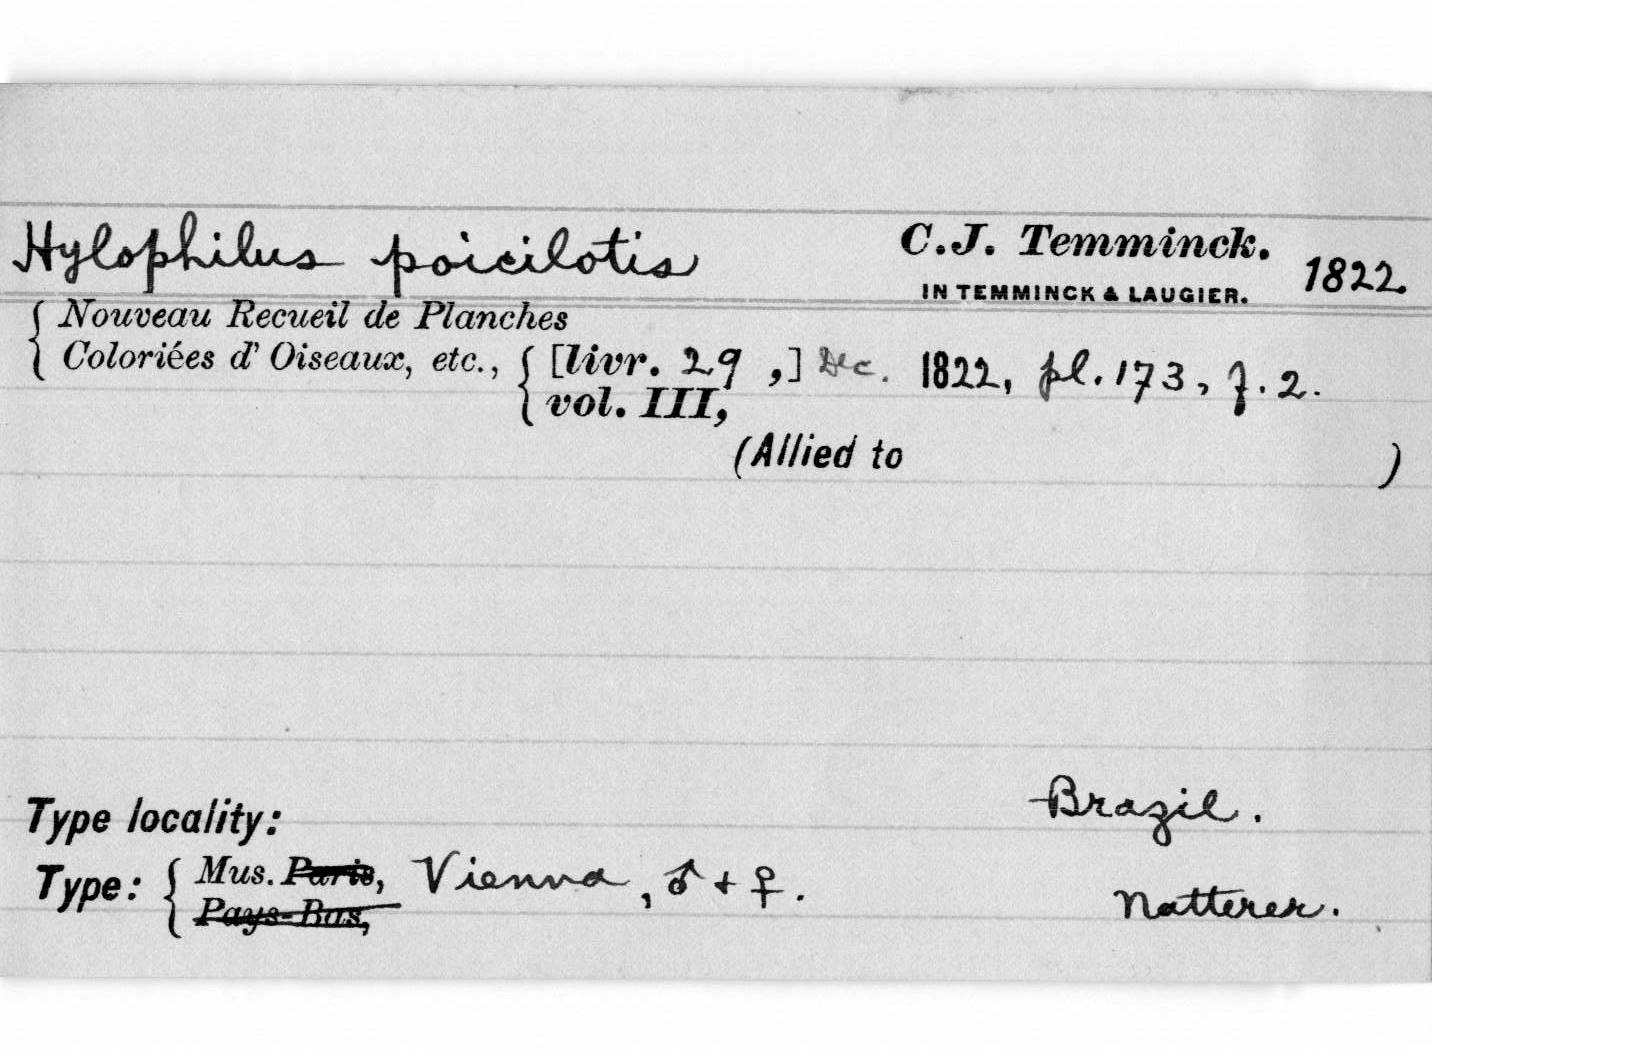 Hylophilus poicilotis C.J. Temminck. 1822.
IN TEMMINCK & LAUGIER.
{ Nouveau Recueil de Planches
Coloriées d' Oiseaux, etc., { [livr. 29 ,] Dec. 1822, pl. 173, f. 2.
vol. III,
(Allied to )
Type locality: Brazil.
Type: { Mus. Paris, Vienna, ♂ + ♀. Natterer.
Pays-Bas,